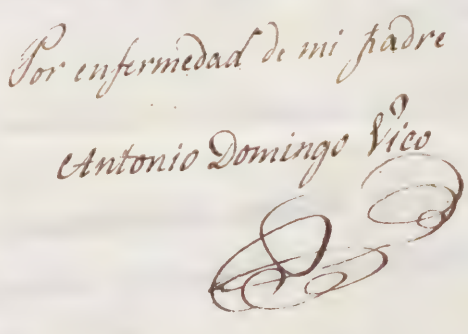 Por enfermedad de mi padre
Antonio Domingo Vico